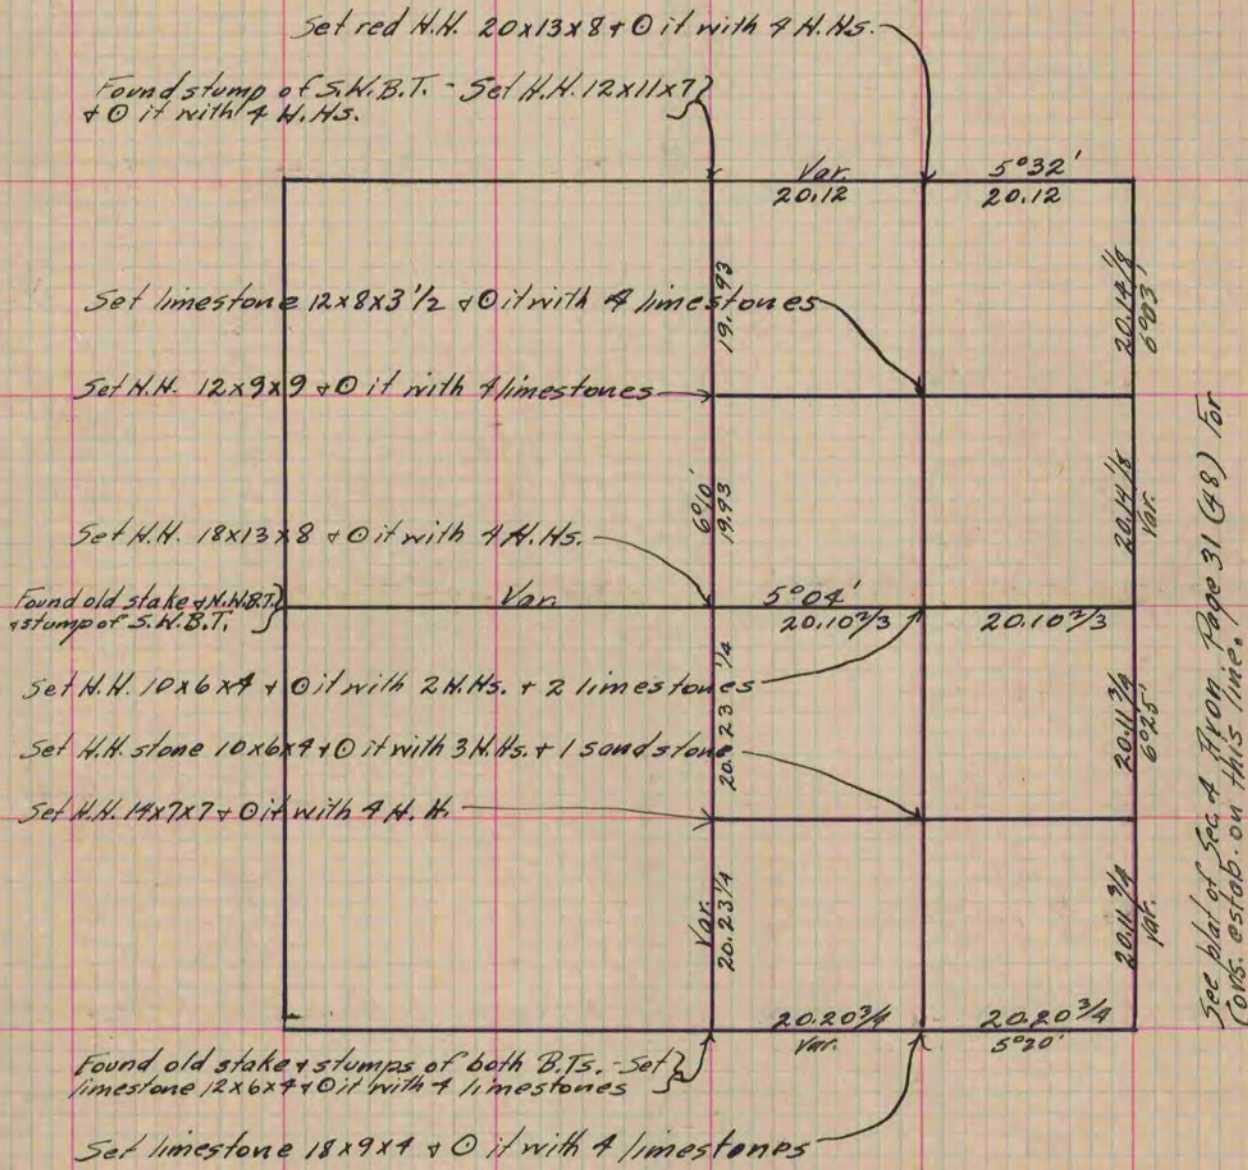 Set red H.H. 20x13x8 & ⊙ it with 4 H.Hs.
Found stump of S.W.B.T. - Set H.H. 12x11x7
& ⊙ it with 4 H.Hs.
Var. 5°32'
20.12 20.12
19.93
20.14 1/8
6°03'
Set limestone 12x8x3 1/2 & ⊙ it with 4 limestones
Set H.H. 12x9x9 & ⊙ it with 4 limestones
6°10'
19.93
20.14 1/8
Var.
Set H.H. 18x13x8 & ⊙ it with 4 H.Hs.
Found old stake & N.W.B.T.
& stump of S.W.B.T.
Var. 5°04'
20.10 2/3 20.10 2/3
20.23 1/4
20.11 3/4
6°25'
Set H.H. 10x6x4 & ⊙ it with 2 H.Hs. + 2 limestones
Set H.H. stone 10x6x4 & ⊙ it with 3 H.Hs. + 1 sandstone
Set H.H. 14x7x7 & ⊙ it with 4 H.H.
Var.
20.23 1/4
20.11 3/4
Var.
20.20 3/4 20.20 3/4
Var. 5°20'
Found old stake & stumps of both B.Ts. - Set
limestone 12x6x4 & ⊙ it with 4 limestones
Set limestone 18x9x4 & ⊙ it with 4 limestones
See plat of Sec. 4 Avon Page 31 (48) For
Cors. estab. on this line.